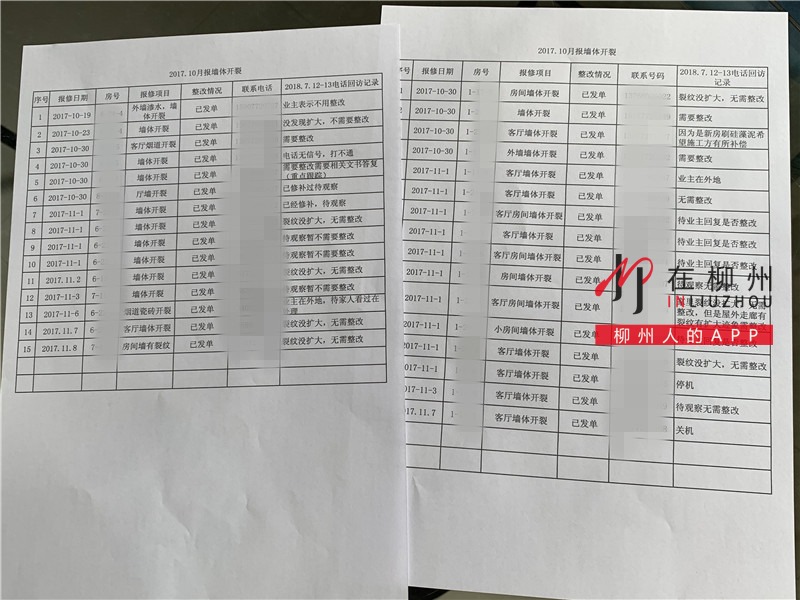 2017.10月报墙体开裂
序号 报修日期 房号 报修项目 整改情况 联系电话 2018.7.12-13电话回访记录
1 2017-10-19 外墙渗水、墙体开裂 已发单 业主表示不用整改
2 2017-10-23 墙体开裂 已发单 没发现扩大，不需要整改
3 2017-10-30 客厅烟道开裂 已发单 需要整改
4 2017-10-30 墙体开裂 已发单 电话无信号，打不通
5 2017-10-30 墙体开裂 已发单 需要整改需要相关文书答复（重点跟踪）
6 2017-10-30 厅墙开裂 已发单 已修补过待观察
7 2017-11-1 墙体开裂 已发单 已经修补，待观察
8 2017-11-1 墙体开裂 已发单 裂纹没扩大，无需整改
9 2017-11-1 墙体开裂 已发单 待观察暂不需要整改
10 2017-11-1 墙体开裂 已发单 待观察暂不需要整改
11 2017.11.2 墙体开裂 已发单 裂纹没扩大，无需整改
12 2017-11-3 墙体开裂 已发单 待观察暂不需要整改
13 2017-11-6 烟道瓷砖开裂 已发单 业主在外地，待家人看过在处理
14 2017.11.7 客厅墙体开裂 已发单 裂纹没扩大，无需整改
15 2017.11.8 房间墙有裂纹 已发单 裂纹没扩大，无需整改
2017.10月报墙体开裂
序号 报修日期 房号 报修项目 整改情况 联系号码 2018.7.12-13电话回访记录
1 2017-10-30 房间墙体开裂 已发单 裂纹没扩大，无需整改
2 2017-10-30 墙体开裂 已发单 需要整改
2017-10-30 客厅墙体开裂 已发单 因为是新房刷硅藻泥希望施工方有所补偿
2017-10-30 外墙墙体开裂 已发单 需要整改
2017-11-1 客厅墙体开裂 已发单 业主在外地
2017-11-1 客厅墙体开裂 已发单 无需整改
2017-11-1 客厅房间墙体开裂 已发单 待业主回复是否整改
2017-11-1 客厅墙体开裂 已发单 待业主回复是否整改
2017-11-1 客厅房间墙体开裂 已发单 待业主回复是否整改
2017-11-1 房间墙体开裂 已发单 待观察无需
客厅房间墙体开裂 已发单 整改，但是屋外走廊有
小房间墙体开裂 已发单
客厅墙体开裂 已发单 裂纹没扩大，无需整改
客厅墙体开裂 已发单 停机
-11-3 客厅墙体开裂 已发单 待观察无需整改
2017.11.7 客厅墙体开裂 已发单 关机
在柳州
IN LIUZHOU
柳州人的APP